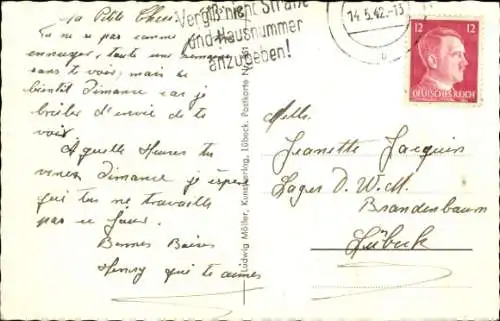 Ma Petite Cheri
Tu ne vas pas comme
ennuyer, toute une semaine
sans te voir, mais se
bientôt Dimance car je
brûler d'envie de te
voir
A quelle Heures tu
venez Dimance j'espère
que tu ne travaille
pas se jour.
Bonnes Baises
Henry qui te aimes
Vergiß nicht Straße
und Hausnummer
anzugeben!
14.5.42.-13
12 12
DEUTSCHES REICH
Ludwig Möller, Kunstverlag, Lübeck. Postkarte Nr.
Mlle.
Jeanette Jacquin
Lager D. W. M.
Brandenbaum
Lübeck